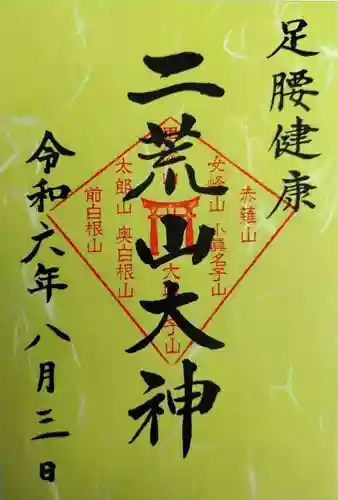 足腰健康
二荒山大神
赤薙山
女峰山 小真名子山
太郎山 奥白根山
前白根山
令和六年八月三日